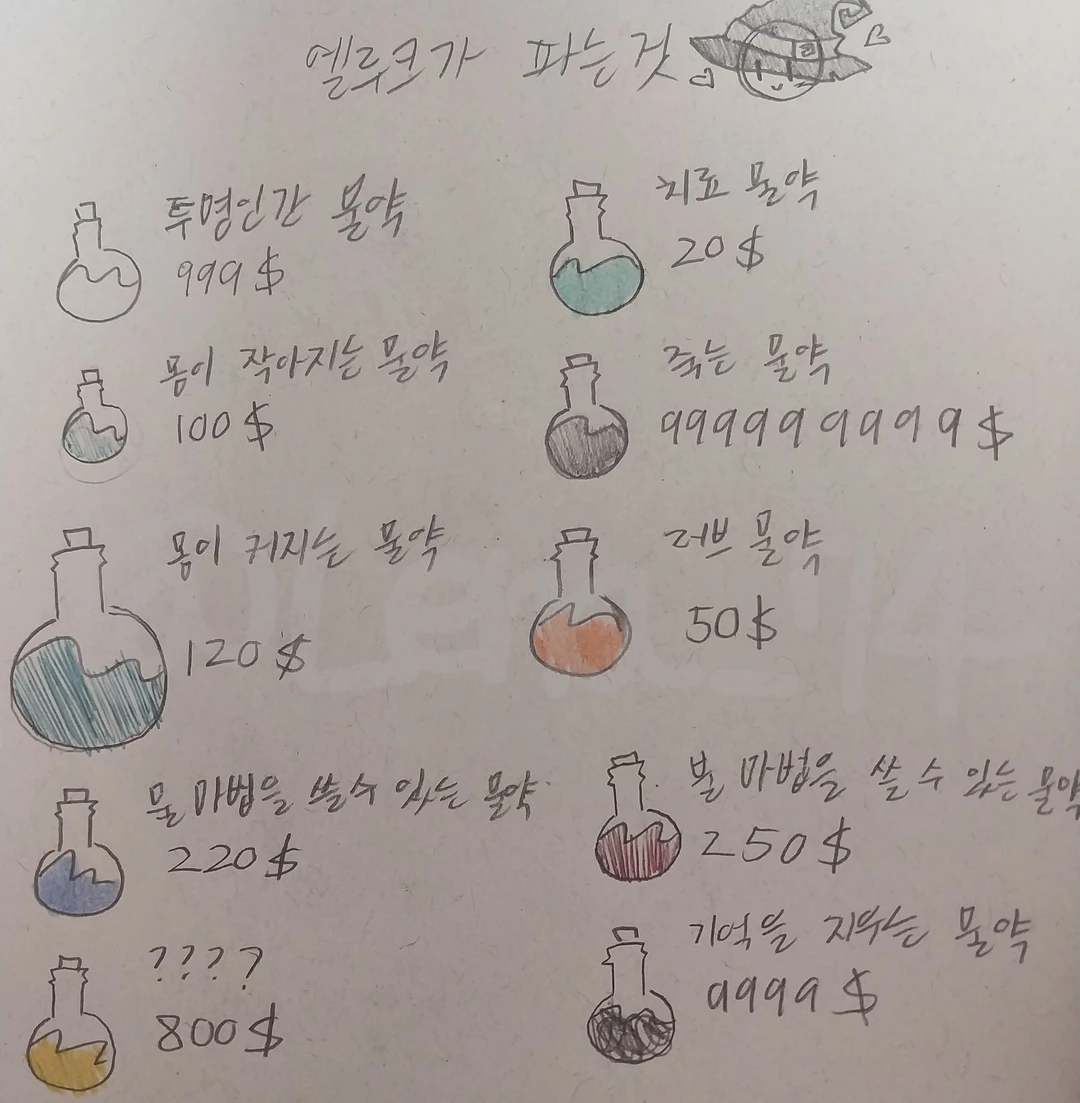 엘루크가 파는것
투명인간 물약
999$
치료 물약
20$
몸이 작아지는 물약
100$
죽는 물약
9999999999$
몸이 커지는 물약
120$
러브 물약
50$
물 마법을 쓸수 있는 물약
220$
불 마법을 쓸 수 있는 물약
250$
????
800$
기억을 지우는 물약
9999$